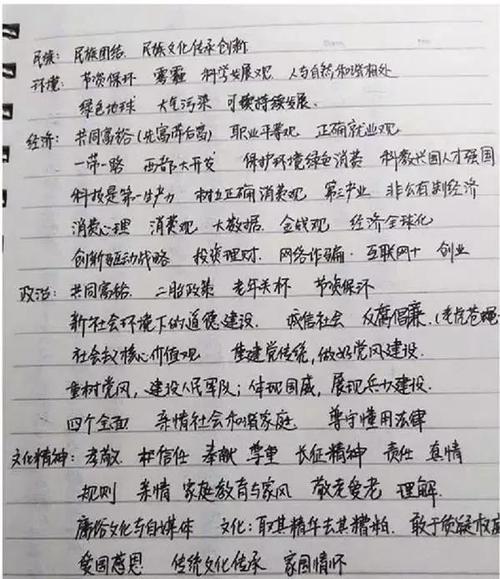 民族：民族团结 民族文化传承创新
环境：节资保环 雾霾 科学发展观 人与自然和谐相处
绿色地球 大气污染 可持续发展.
经济：共同富裕(先富带后富) 职业平等观 正确就业观
一带一路 西部大开发 保护环境绿色消费 科教兴国人才强国
科技是第一生产力 树立正确消费观 第三产业 非公有制经济
消费心理 消费观 大数据 金钱观 经济全球化
创新驱动战略 投资理财. 网络诈骗. 互联网十 创业
政治：共同富裕. 二胎政策 老年关怀 节资保环
新社会环境下的道德建设. 诚信社会 反腐倡廉.(老虎苍蝇
社会主义核心价值观 重建党传统,做好党风建设.
重树党风，建设人民军队；体现国威，展现兵力建设.
四个全面 亲情社会和谐家庭 尊守懂用法律
文化精神：孝敬 相信任 奉献 尊重 长征精神 责任 真情
规则 亲情 家庭教育与家风 敬老爱老 理解.
庸俗文化与自媒体 文化：取其精华去其糟粕. 敢于质疑权威
爱国感恩 传统文化传承 家国情怀